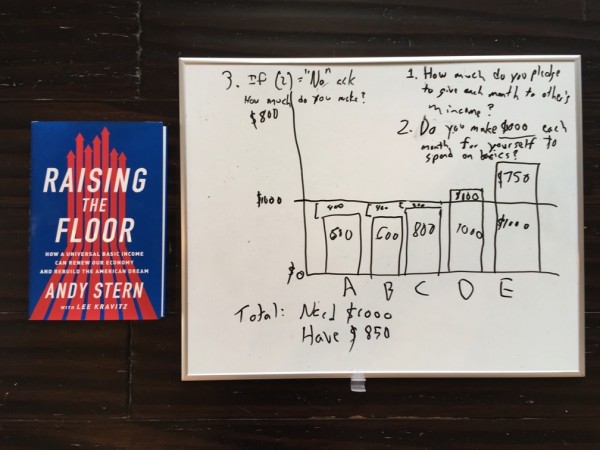 RAISING
THE
FLOOR
HOW A UNIVERSAL BASIC INCOME
CAN RENEW OUR ECONOMY
AND REBUILD THE AMERICAN DREAM
ANDY STERN
WITH LEE KRAVITZ
3. If (2) = "No" ask
How much do you make?
$800
1. How much do you pledge
to give each month to other's
income?
2. Do you make $1000 each
month for yourself to
spend on basics?
$750
$1000
400
400
200
$100
600
600
800
1000
$1000
$0
A B C D E
Total: Need $1000
Have $850